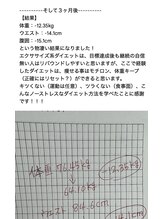 ----------そして３ヶ月後----------
【結果】
体重：-12.35kg
ウエスト：-14.1cm
腹囲：-15.1cm
という物凄い結果になりました！
エクササイズ系ダイエットは、目標達成後も継続の自信
無い人はリバウンドしやすいと思いますが、ここで経験
したダイエットは、痩せる事はモチロン、体重キープ
（正確にはリセット？）ができると思います。
キツくない（運動は任意）、ツラくない（食事面）、こ
んなノーストレスなダイエット方法を学べたことに感謝
です！！！
体重 76.45kg
64.10kg
-12.35kg
ウエスト